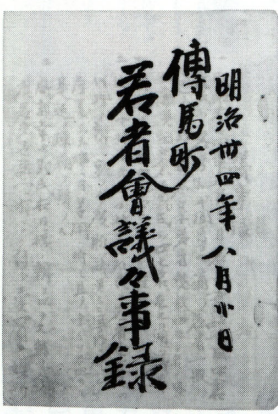 明治卅四年八月廿日
傳馬町
若者會議々事録